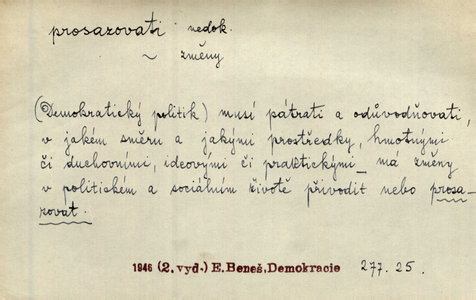 prosazovati nedok.
~ změny
(Demokratický politik) musí pátrati a odůvodňovati,
v jakém směru a jakými prostředky, hmotnými
či duchovními, ideovými či praktickými má změny
v politickém a sociálním životě přivodit nebo prosa-
zovat.
1946 (2. vyd.) E. Beneš, Demokracie 277. 25.